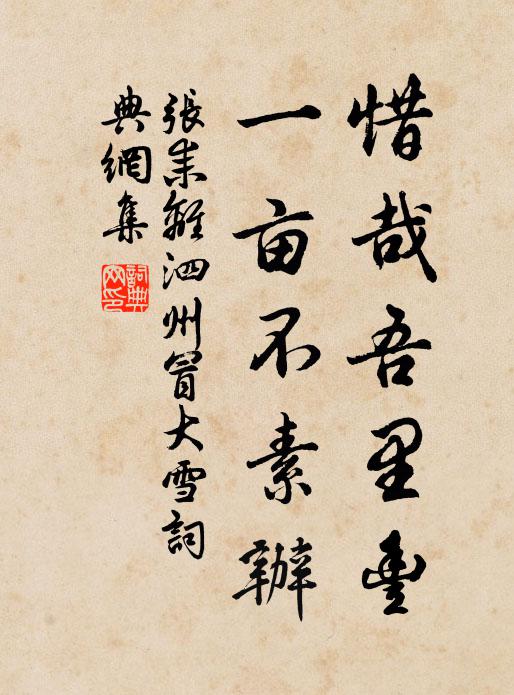 惜哉吾里豊
一亩不素辦
張耒離泗州冒大雪詞
典網集
詞典
网印